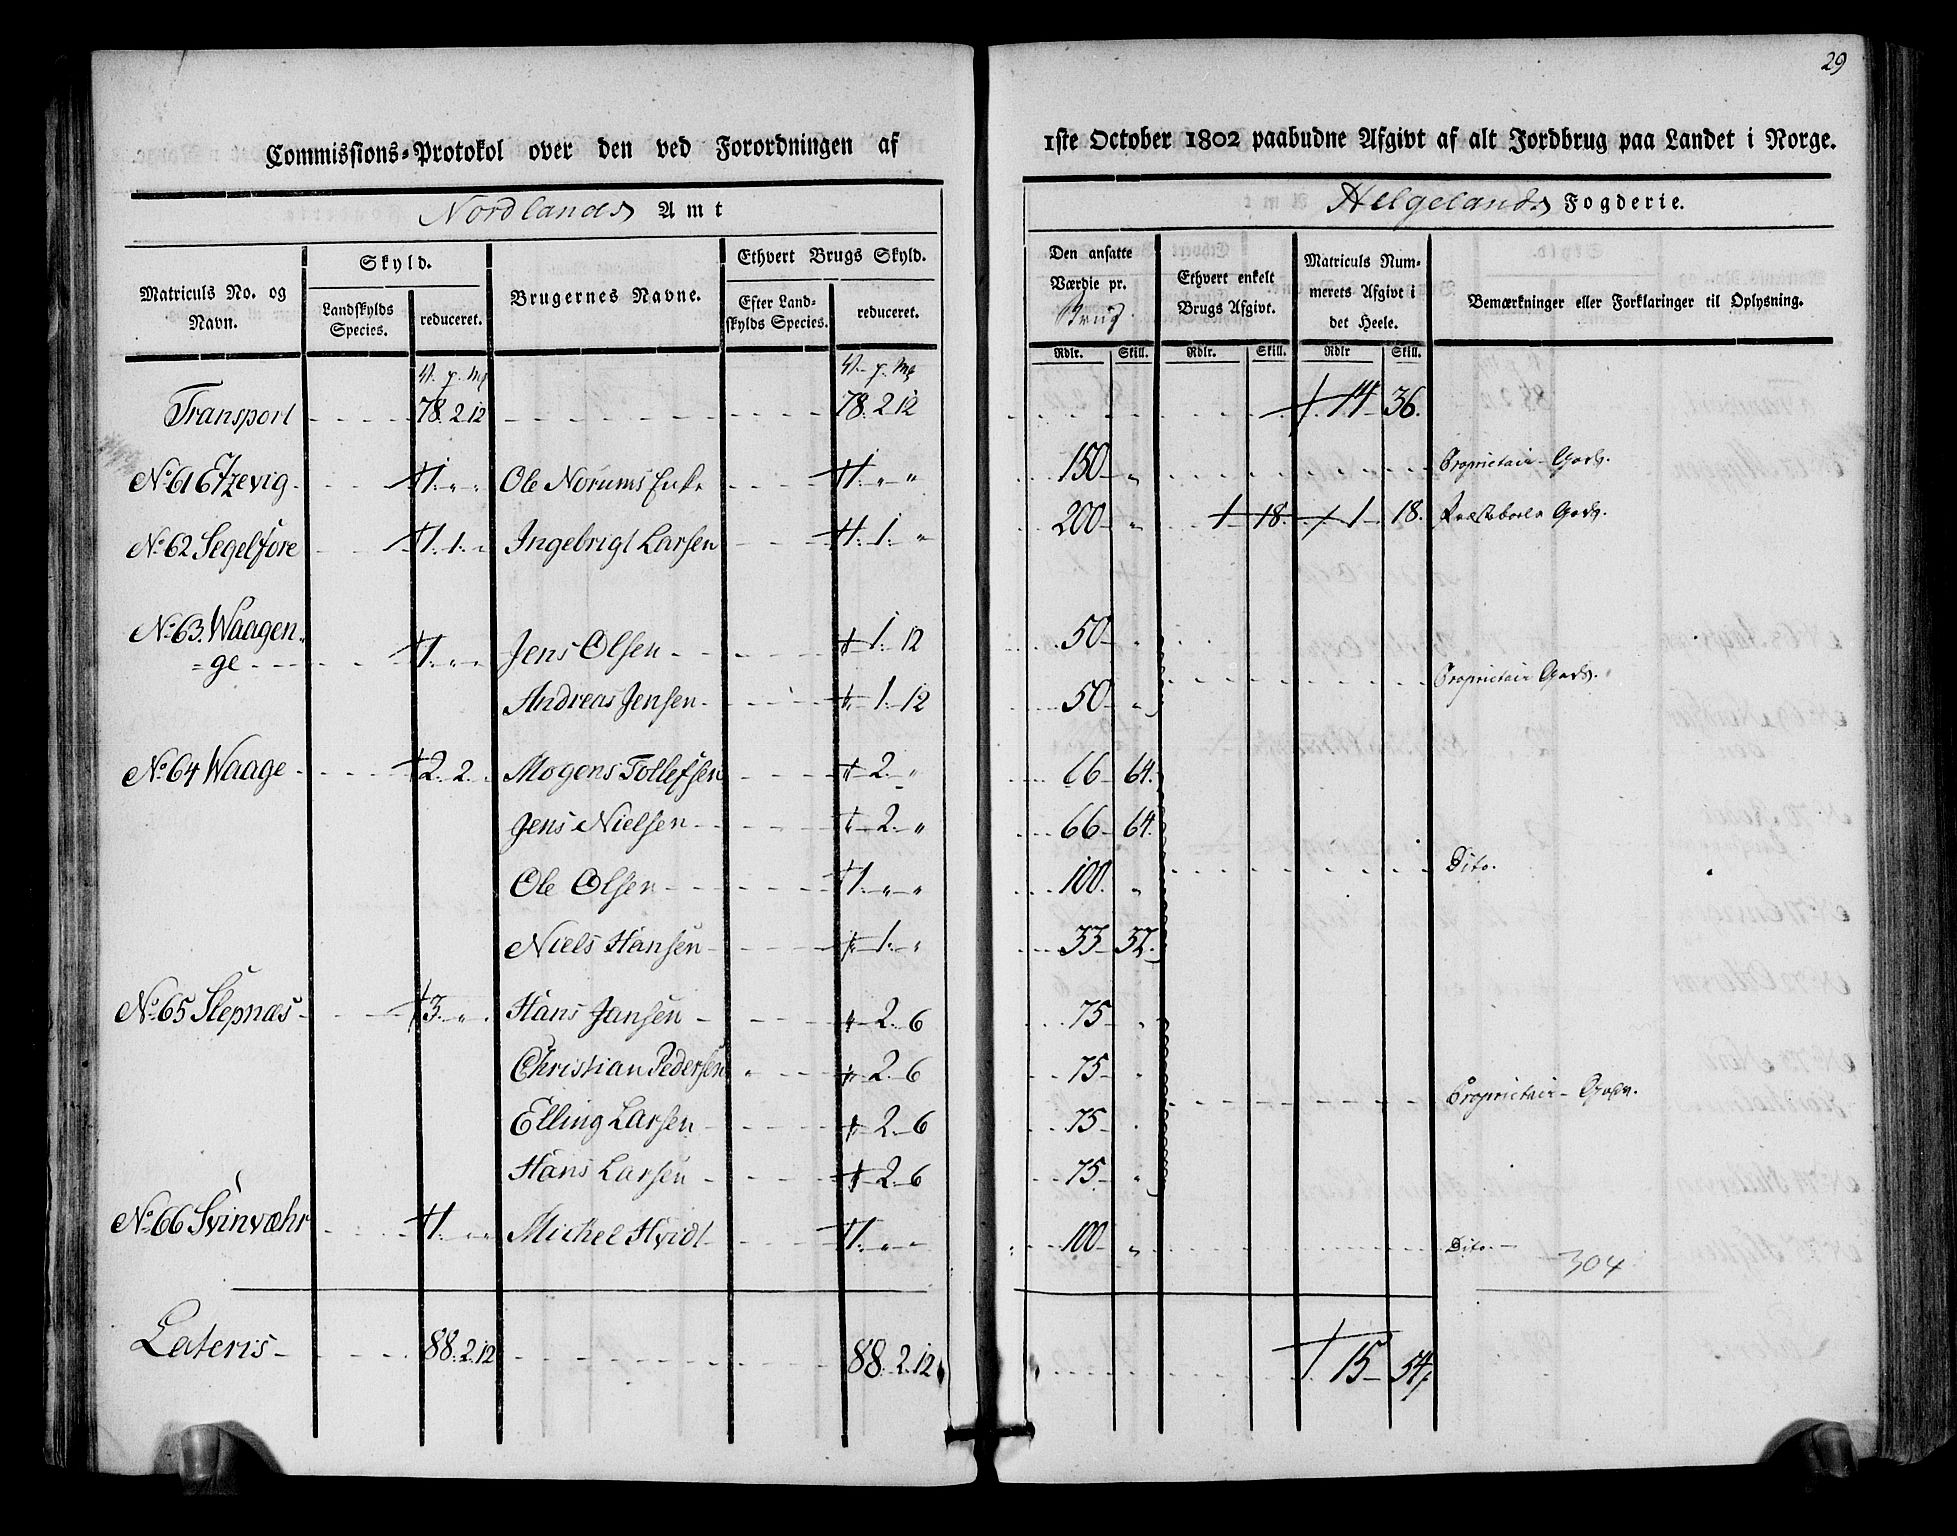 29
Commissions-Protokol over den ved Forordningen af
1ste October 1802 paabudne Afgivt af alt Jordbrug paa Landet i Norge.
Nordlands Amt
Helgelands Fogderie.
Matriculs No. og Navn. Skyld. Landskylds Species. reduceret. Brugernes Navne. Ethvert Brugs Skyld. Efter Landskylds Species. reduceret. Den ansatte Værdie pr. Brug Ethvert enkelt Brugs Afgivt. Matriculs Nummerets Afgivt i det Heele. Bemærkninger eller Forklaringer til Oplysning.
Rdlr. Skill. Rdlr. Skill. Rdlr Skill.
V. p. Mk V. p. Mk
Transport 78. 2. 12 78. 2. 12 14 36.
No. 61 1. " " Ole Norums Enke 1. " " 150 " Proprietair Gods.
No. 62 Segelfore 1. 1. " Ingebrigt Larsen 1. 1. " 200 " 1 18. 1 18. Præstebords Gods.
No. 63. Waagen=
=ge 1. " " Jens Olsen 1. 12 50 "
Andreas Jensen 1. 12 50 " Proprietair Gods.
No. 64 Waage 2. 2. " Mogens Tollefsen 2. " 66 64.
Jens Nielsen 2. " 66 64.
Ole Olsen 1. " " 100. " Dito.
Niels Hansen 1. " 33 32.
No. 65 Slepnæs 3. " " Hans Jansen 2. 6 75 "
Christian Pedersen 2. 6 75 "
Elling Larsen 2. 6 75 " Proprietair Gods.
Hans Larsen 2. 6 75 "
No. 66 Svinvæhr 1. " " Michel Hvidt 1. " " 100 " Dito.
304
Lateris 88. 2. 12 88. 2. 12 15 54.